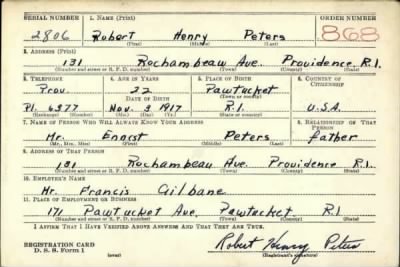 SERIAL NUMBER 1. NAME (Print) ORDER NUMBER
2806 Robert Henry Peters 868
(First) (Middle) (Last)
2. ADDRESS (Print)
131 Rochambeau Ave. Providence R.I.
(Number and street or R. F. D. number) (Town) (County) (State)
3. TELEPHONE 4. AGE IN YEARS 5. PLACE OF BIRTH 6. COUNTRY OF CITIZENSHIP
Prov. 22 Pawtucket
DATE OF BIRTH (Town or county)
Pl. 6377 Nov. 3 1917 R.I. U.S.A.
(Exchange) (Number) (Mo.) (Day) (Yr.) (State or country)
7. NAME OF PERSON WHO WILL ALWAYS KNOW YOUR ADDRESS 8. RELATIONSHIP OF THAT PERSON
Mr. Ernest Peters father
(Mr., Mrs., Miss) (First) (Middle) (Last)
9. ADDRESS OF THAT PERSON
131 Rochambeau Ave. Providence R.I.
(Number and street or R. F. D. number) (Town) (County) (State)
10. EMPLOYER'S NAME
Mr. Francis Gilbane
11. PLACE OF EMPLOYMENT OR BUSINESS
171 Pawtucket Ave. Pawtucket R.I
(Number and street or R. F. D. number) (Town) (County) (State)
I AFFIRM THAT I HAVE VERIFIED ABOVE ANSWERS AND THAT THEY ARE TRUE.
REGISTRATION CARD
D. S. S. Form 1 (over) Robert Henry Peters
(Registrant's signature)